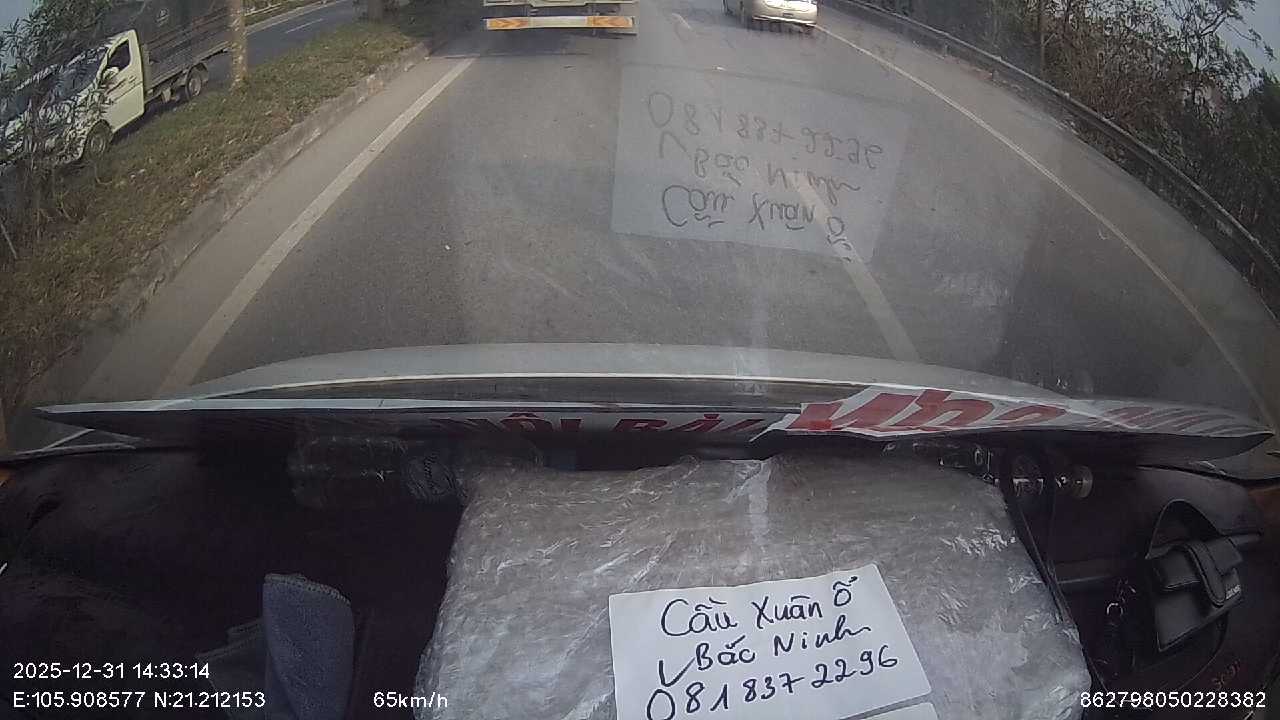 NỘI BÀI
Cầu Xuân Ổ
Bắc Ninh
081 837 2296
2025-12-31 14:33:14
E:105.908577 N:21.212153
65km/h
862798050228382